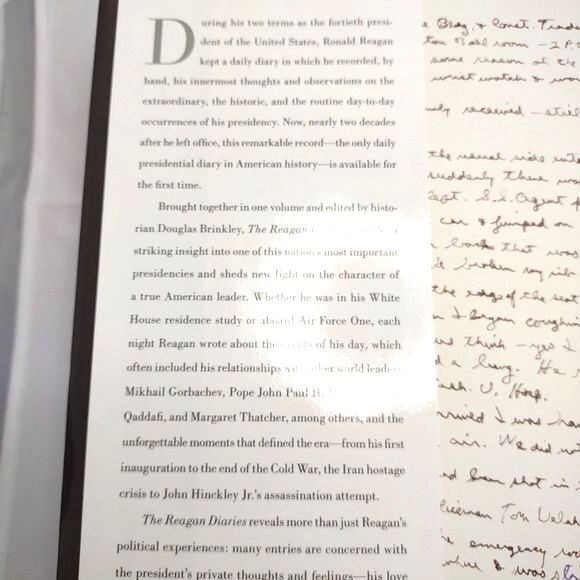 During his two terms as the fortieth presi-
dent of the United States, Ronald Reagan
kept a daily diary in which he recorded, by
hand, his innermost thoughts and observations on the
extraordinary, the historic, and the routine day-to-day
occurrences of his presidency. Now, nearly two decades
after he left office, this remarkable record—the only daily
presidential diary in American history—is available for
the first time.
Brought together in one volume and edited by histo-
rian Douglas Brinkley, The Reagan
striking insight into one of this nation's most important
presidencies and sheds new light on the character of
a true American leader. Whether he was in his White
House residence study or aboard Air Force One, each
night Reagan wrote about the events of his day, which
often included his relationships with other world leaders
Mikhail Gorbachev, Pope John Paul II,
Qaddafi, and Margaret Thatcher, among others, and the
unforgettable moments that defined the era—from his first
inauguration to the end of the Cold War, the Iran hostage
crisis to John Hinckley Jr.'s assassination attempt.
The Reagan Diaries reveals more than just Reagan's
political experiences: many entries are concerned with
the president's private thoughts and feelings—his love
Bldg. & Const. Trades
Ball room – 2 P.
some reason at the
wrist watch &
received – still
the usual side
suddenly there
S.S. Agent
car & jumped on
that was
broken rib
the edge of the seat
I began coughing
think – yes I
a lung. He
U. Hosp.
I was
air. We did not
been shot in
Tom
emergency room
where I was